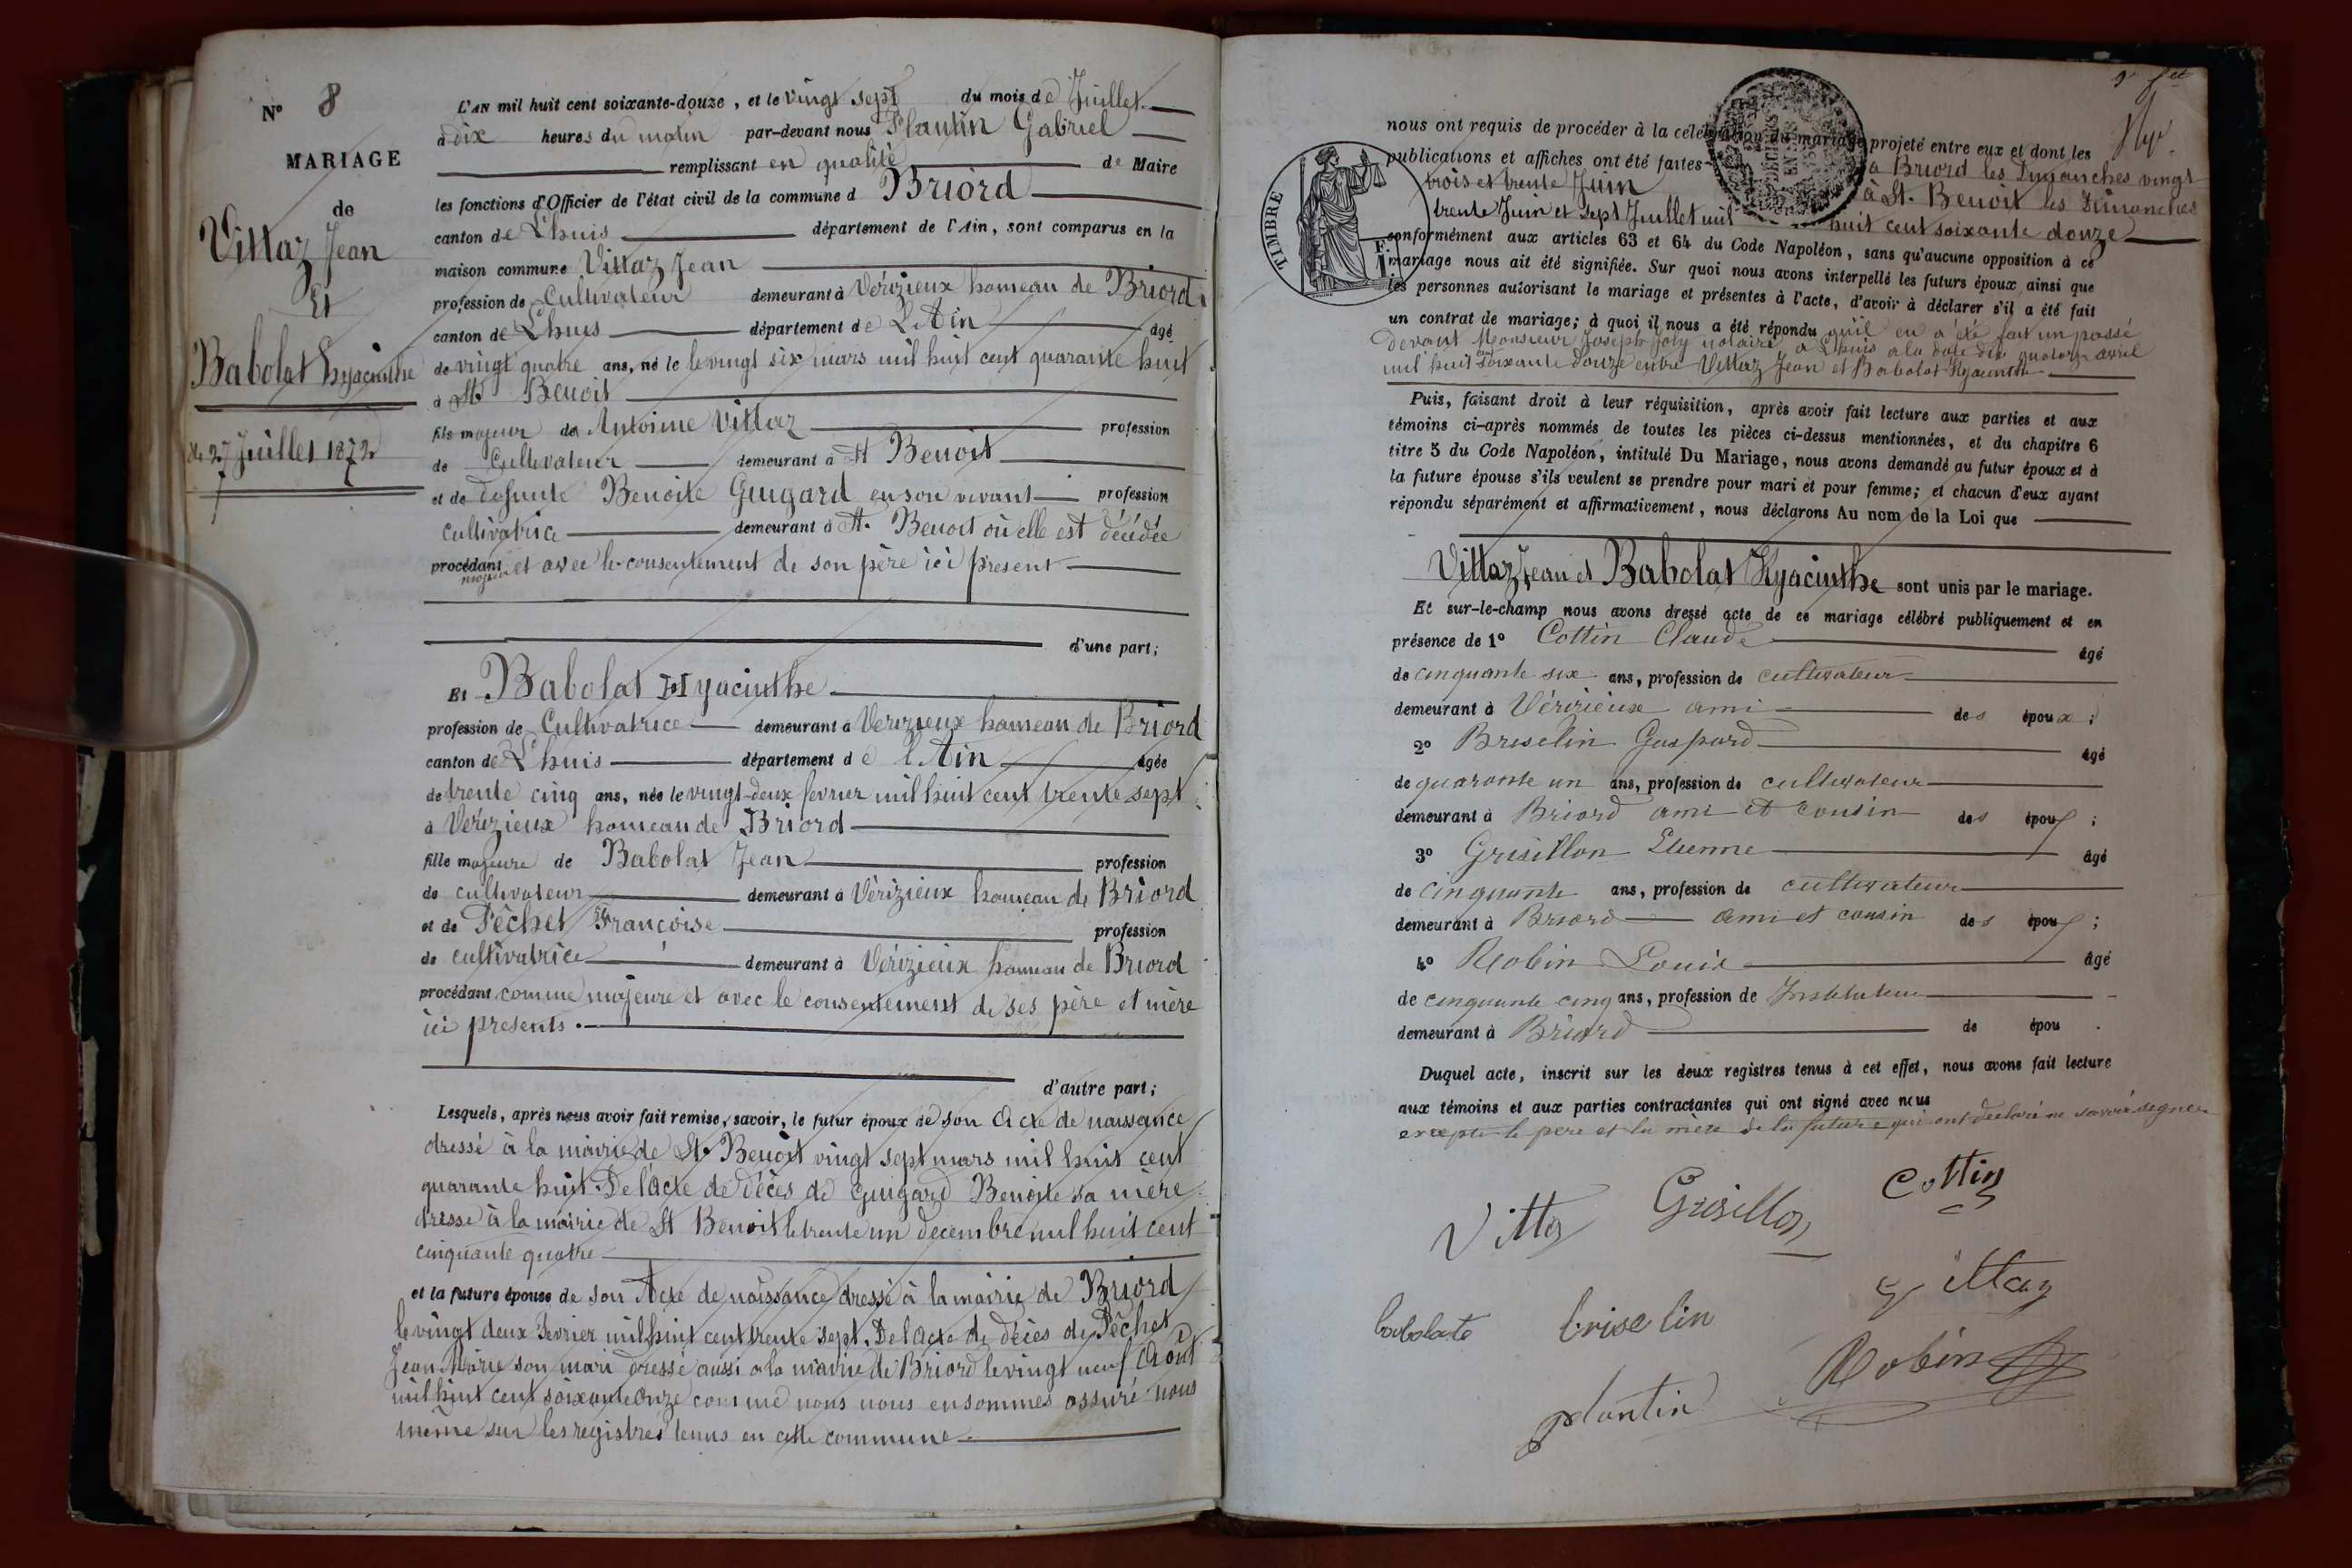 N° 8
MARIAGE
de
Vittaz Jean
Et
Babolat hyacinthe
du 27 Juillet 1872
L'AN mil huit cent soixante-douze, et le vingt sept du mois de Juillet
à dix heures du matin par-devant nous Plantin Gabriel
remplissant en qualité de Maire
les fonctions d'Officier de l'état civil de la commune d Briord
canton de L'huis département de l'Ain, sont comparus en la
maison commune Vittaz Jean
profession de Cultivateur demeurant à Vérizieux hameau de Briord
canton de L'huis département de L'Ain âgé
de vingt quatre ans, né le le vingt six mars mil huit cent quarante huit
à St Benoit
fils majeur de Antoine Vittaz profession
de Cultivateur demeurant à St Benoit
et de defunte Benoite Guigard en son vivant profession
cultivatrice demeurant à St. Benoit où elle est décédée
procédant majeur et avec le consentement de son père ici présent
d'une part;
Et Babolat Hyacinthe
profession de Cultivatrice demeurant à Vérizieux hameau de Briord
canton de L'huis département de l'Ain âgée
de trente cinq ans, née le vingt-deux fevrier mil huit cent trente sept
à Vérizieux hameau de Briord
fille majeure de Babolat Jean profession
de cultivateur demeurant à Vérizieux hameau de Briord
et de Pêchet Françoise profession
de cultivatrice demeurant à Vérizieux hameau de Briord
procédant comme majeure et avec le consentement de ses père et mère
ici presents.
d'autre part;
Lesquels, après nous avoir fait remise, savoir, le futur époux de son Acte de naissance
dressé à la mairie de St. Benoit vingt sept mars mil huit cent
quarante huit. De l'acte de décès de Guigard Benoite sa mère
dressé à la mairie de St Benoit le trente un decembre mil huit cent
cinquante quatre
et la future épouse de son Acte de naissance dressé à la mairie de Briord
le vingt deux Fevrier mil huit cent trente sept. De l'acte de décès de Pêchet
Jean Marie son mari dressé aussi a la mairie de Briord le vingt neuf Août
mil huit cent soixante onze comme nous nous en sommes assuré nous
même sur les registres tenus en cette commune
nous ont requis de procéder à la célébration du mariage projeté entre eux et dont les
publications et affiches ont été faites à Briord les Dimanches vingt
trois et trente Juin à St. Benoit les Dimanches
trente Juin et sept Juillet mil huit cent soixante douze
TIMBRE
conformément aux articles 63 et 64 du Code Napoléon, sans qu'aucune opposition à ce
mariage nous ait été signifiée. Sur quoi nous avons interpellé les futurs époux ainsi que
les personnes autorisant le mariage et présentes à l'acte, d'avoir à déclarer s'il a été fait
un contrat de mariage; à quoi il nous a été répondu qu'il en a été fait un passé
devant Monsieur Joseph Joly notaire a L'huis a la date du quatorze avril
mil huit cent soixante douze entre Vittaz Jean et Babolat Hyacinthe
Puis, faisant droit à leur réquisition, après avoir fait lecture aux parties et aux
témoins ci-après nommés de toutes les pièces ci-dessus mentionnées, et du chapitre 6
titre 5 du Code Napoléon, intitulé Du Mariage, nous avons demandé au futur époux et à
la future épouse s'ils veulent se prendre pour mari et pour femme; et chacun d'eux ayant
répondu séparément et affirmativement, nous déclarons Au nom de la Loi que
Vittaz Jean et Babolat Hyacinthe sont unis par le mariage.
Et sur-le-champ nous avons dressé acte de ce mariage célébré publiquement et en
présence de 1° Cottin Claude âgé
de cinquante six ans, profession de cultivateur
demeurant à Vérizieux ami des époux;
2° Briselin Gaspard âgé
de quarante un ans, profession de cultivateur
demeurant à Briord ami et cousin des époux;
3° Grisillon Etienne âgé
de cinquante ans, profession de cultivateur
demeurant à Briord ami et cousin des époux;
4° Robin Louis âgé
de cinquante cinq ans, profession de Instituteur
demeurant à Briord de épou.
Duquel acte, inscrit sur les deux registres tenus à cet effet, nous avons fait lecture
aux témoins et aux parties contractantes qui ont signé avec nous
excepté le père et la mère de la future qui ont declaré ne savoir signer
Vittaz Grisillon Cottin
babolate briselin Vittaz
plantin Robin